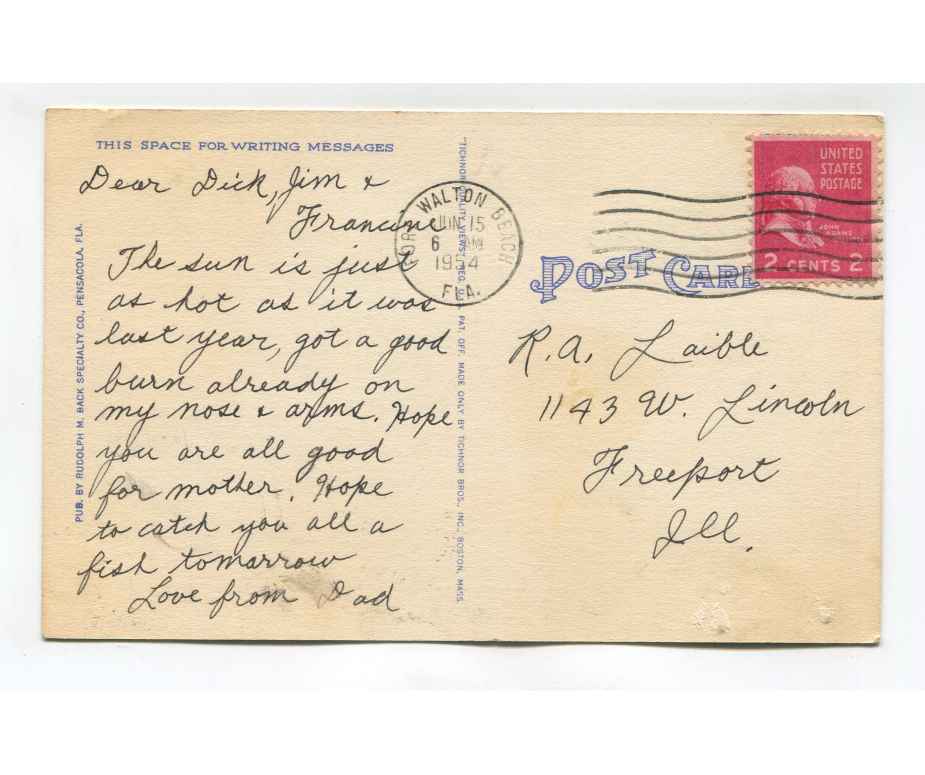 THIS SPACE FOR WRITING MESSAGES
Dear Dick, Jim &
Francine
The sun is just
as hot as it was
last year, got a good
burn already on
my nose & arms. Hope
you are all good
for mother. Hope
to catch you all a
fish tomarrow
Love from Dad
PUB. BY RUDOLPH M. BACK SPECIALTY CO., PENSACOLA, FLA.
PAT. OFF. MADE ONLY BY TICHNOR BROS., INC., BOSTON, MASS.
WALTON BEACH
JUN 15
6
1954
FLA.
UNITED
STATES
POSTAGE
JOHN
ADAMS
2 CENTS 2
POST CARD
R.A. Laible
1143 W. Lincoln
Freeport
Ill.